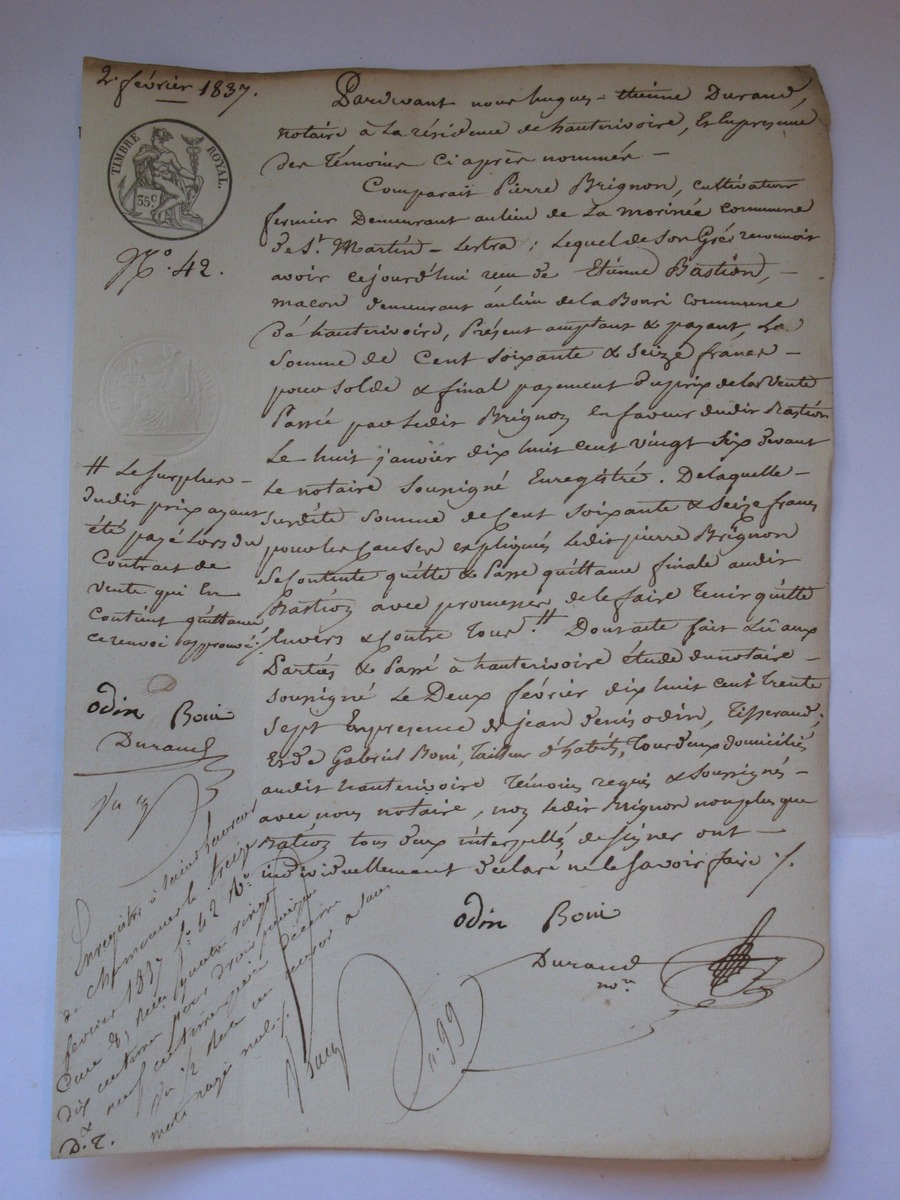 2. février 1837.
TIMBRE ROYAL.
35c.
No. 42.
Pardevant nous hugues-etienne Durand,
notaire à la résidence de hauterivoire, En la presence
des témoins ci après nommés
Comparait Pierre Brignon, cultivateur
fermier Demeurant au lieu de La morinée commune
de St. Martin-Lestra; Lequel de son Gré reconnoit
avoir cejourd'hui recu de Etienne Bastion,
macon demeurant au lieu de la Bonri commune
dudit hauterivoire, Présent acceptant & payant, La
Somme de Cent soixante & seize francs
pour solde & final payement du prix de la Vente
Passée par ledit Brignon En faveur dudit Bastion
Le huit janvier dix huit cent vingt six devant
Le notaire soussigné Enregistré. De laquelle
susdite somme de Cent soixante & seize francs
pour les causes expliqués ledit pierre Brignon
se Contente quitte & Passe quittance finale audit
Bastion avec promesse de le faire tenir quitte
Envers & contre tous. # Dont acte fait & Lû aux
Parties & Passé à hauterivoire étude du notaire
soussigné Le Deux février dix huit cent trente
sept En presence de jean denis odin, tisserand;
Et de Gabriel Boni, tailleur d'habits, tous deux domiciliés
audit hauterivoire témoins requis & soussignés
avec nous notaire, non ledit Brignon non plus que
Bastion tous deux interpellés de signer ont
individuellement déclaré ne le savoir faire ./.
odin Boni
Durand
nore
# Le surplus
dudit prix ayant
été payé Lors du
Contract de
Vente qui En
Contient quittance
ce renvoi approuvé ./.
odin Boni
Durand
Enregistré à Saint Laurent
de Chamousset le treize
février 1837 fo. 42 Ro.
Case 8, recu quatre vingt
dix centimes pour droit principal
neuf centimes pour décime
D. T.
mots rayé nul ./.
99